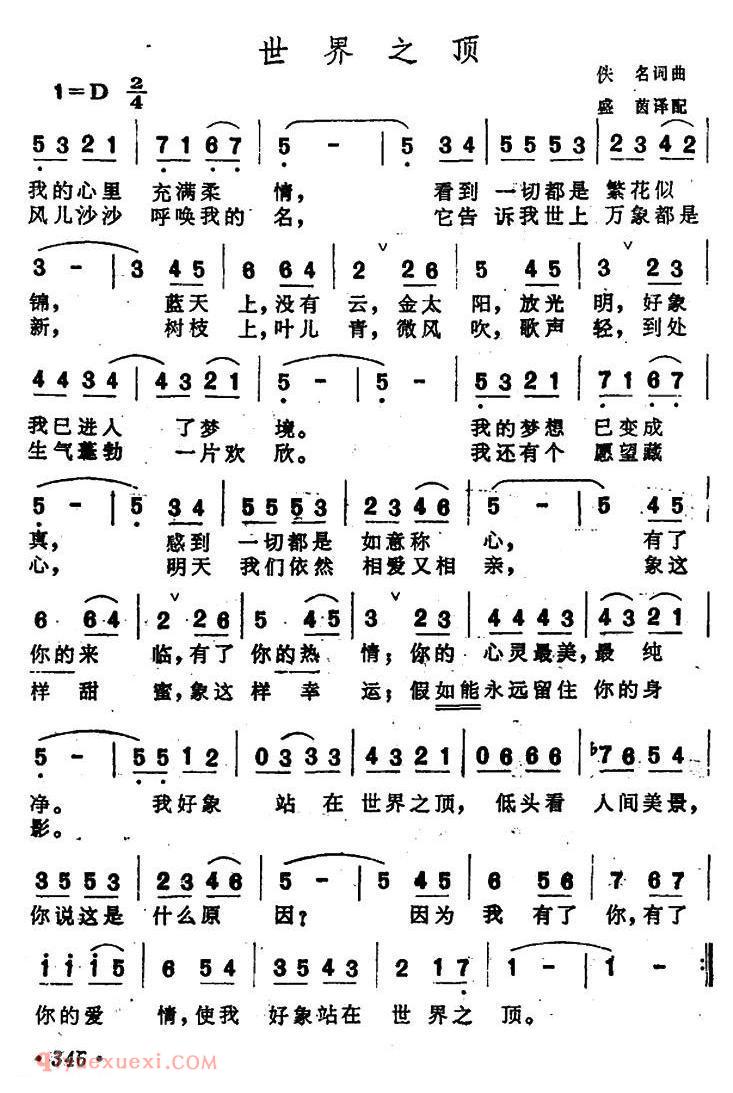 世界之顶
1=D 2/4
佚 名词曲
盛 茵译配
5321 | 7167 | 5 - | 5 34 | 5553 | 2342 |
我的心里 充满柔 情, 看到 一切都是 繁花似
风儿沙沙 呼唤我的 名, 它告 诉我世上 万象都是
3 - | 3 45 | 6 64 | 2 26 | 5 45 | 3 23 |
锦, 蓝天 上,没有 云,金太 阳,放光 明,好象
新, 树枝 上,叶儿 青,微风 吹,歌声 轻,到处
4434 | 4321 | 5 - | 5 - | 5321 | 7167 |
我已进入 了梦 境。 我的梦想 已变成
生气蓬勃 一片欢 欣。 我还有个 愿望藏
5 - | 5 34 | 5553 | 2346 | 5 - | 5 45 |
真, 感到 一切都是 如意称 心, 有了
心, 明天 我们依然 相爱又相 亲, 象这
6 64 | 2 26 | 5 45 | 3 23 | 4443 | 4321 |
你的来 临,有了 你的热 情;你的 心灵最美,最 纯
样甜 蜜,象这 样幸 运;假如能 永远留住 你的身
5 - | 5512 | 0333 | 4321 | 0666 | b7654 |
净。 我好象 站在 世界之顶, 低头看 人间美景,
影。
3553 | 2346 | 5 - | 5 45 | 6 56 | 7 67 |
你说这是 什么原 因? 因为 我 有了 你,有了
iii5 | 6 54 | 3543 | 2 17 | 1 - | 1 - :||
你的爱 情,使我 好象站在 世界之 顶。
·346·
yuexuexi.com